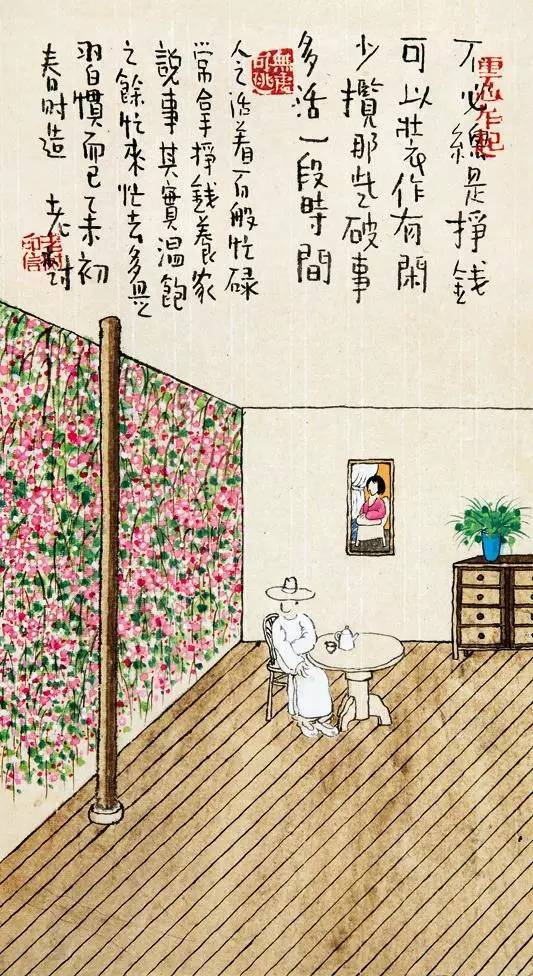 不必總是掙錢
可以裝作有閑
少攬那些破事
多活一段時間
無處可逃
人之活着百般忙碌
常拿掙錢養家
說事其實溫飽
之餘忙來忙去多是
習慣而已乙未初
春時造 老树
老树印信